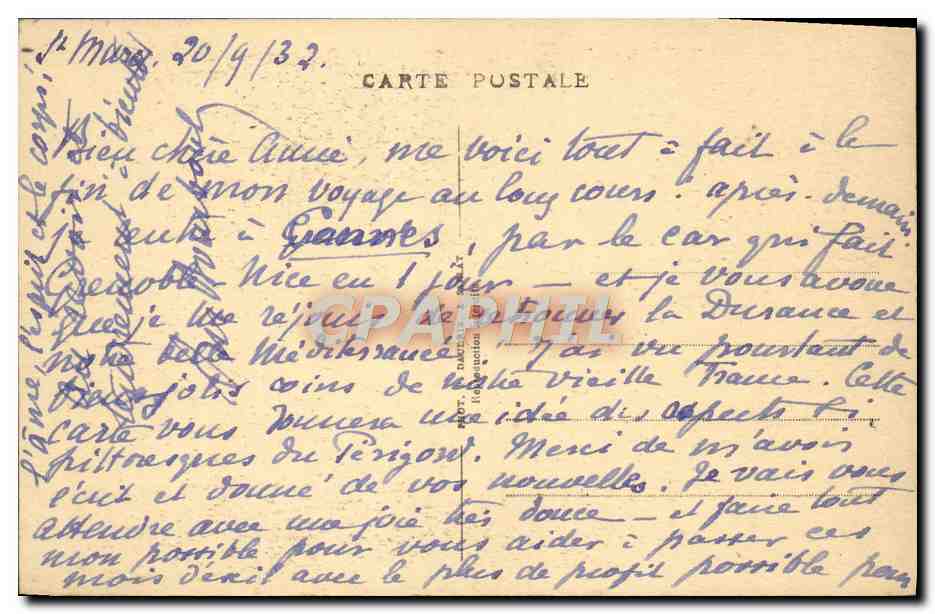 St Marc. 20/9/32.
CARTE POSTALE
Bien chère Amie, me voici tout à fait à la
fin de mon voyage au long cours. Après-demain
je rentre à Cannes, par le car qui fait
Grenoble-Nice en 1 jour — et je vous avoue
que je me réjouis de retrouver la Durance et
notre belle Méditerranée. J'ai vu pourtant de
bien jolis coins de notre vieille France. Cette
carte vous donnera une idée des aspects si
pittoresques du Périgord. Merci de m'avoir
écrit et donné de vos nouvelles. Je vais vous
attendre avec une joie très douce — et faire tout
mon possible pour vous aider à passer ces
mois d'exil avec le plus de profit possible pour
l'âme, l'esprit et le corps!
CPAPHIL